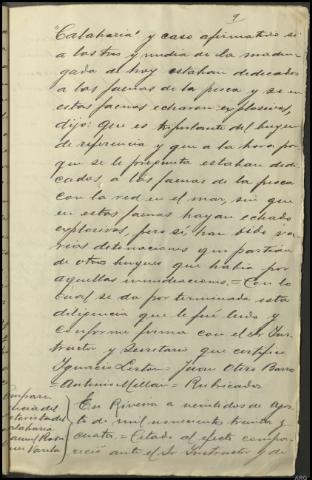 "Calaharia" y caso afirmativo si
a las tres y media de la madru-
gada de hoy estaban dedicados
a las faenas de la pesca y si en
estas faenas echaron explosivos,
dijo: Que es tripulante del buque
de referencia y que a la hora por
que se le pregunta estaban dedi-
cados a las faenas de la pesca
con la red en el mar, sin que
en estas faenas hayan echado
explosivos, pero si, han oido va-
rias detonaciones que partian
de otros buques que habia por
aquellas inmediaciones.= Con lo
cual se da por terminada esta
diligencia que le fué leida y
conforme firma con el Sr Ins-
tructor y Secretario que certifico
Ignacio = Juan Otero
= Antonio Millan = Rubricados
En Riveira a veintidos de agos-
to de mil novecientos treinta y
cuatro.= Citado al efecto compa-
reció ante el Sr Instructor y de
ARG